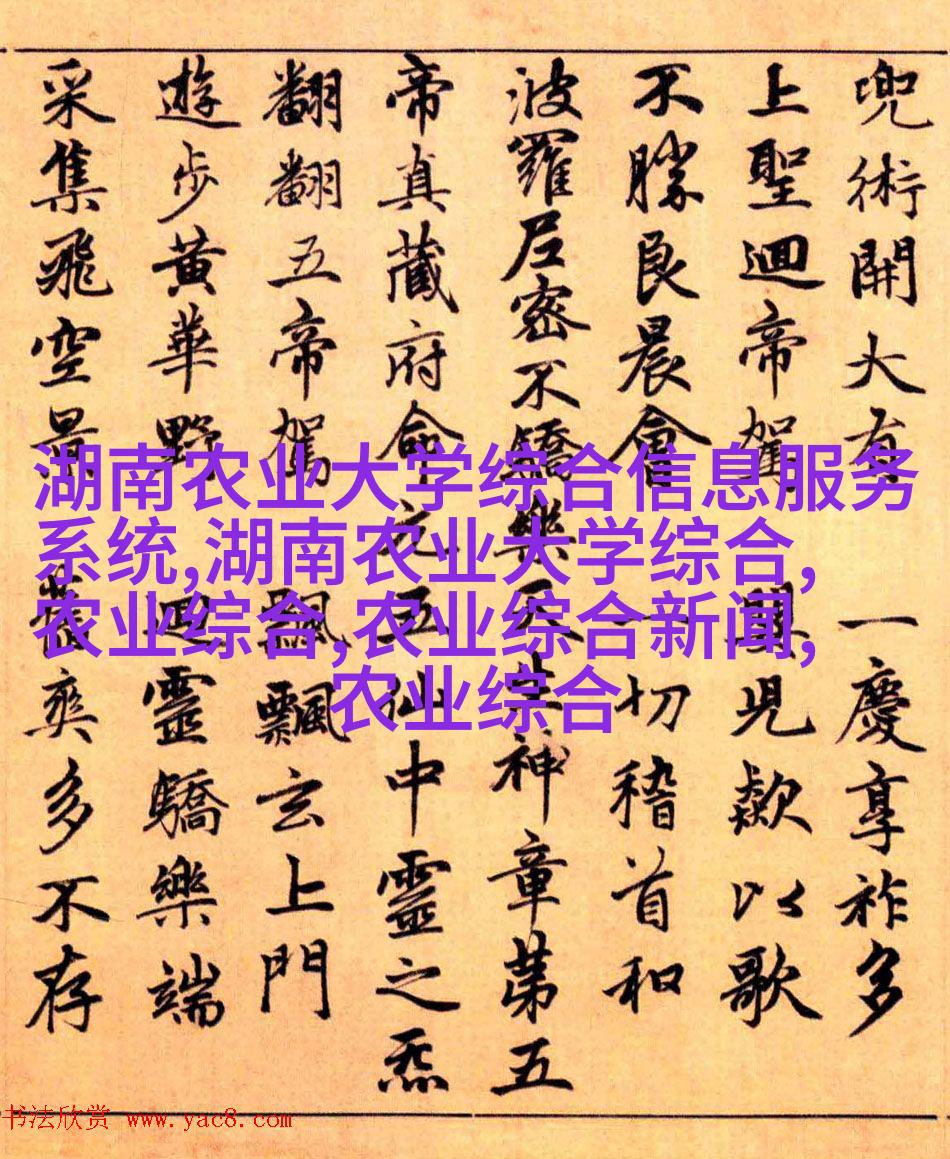 兜術開大有 一慶享祚多
上聖迴帝駕 歎以歌
不勝良晨會 一切稽首和
波羅尼密不驕樂天 神章第五
帝真藏府命元五仙中靈之炁
翻翻五帝駕 飄飄玄上門
遊步黃華野 迴靈驕樂端
采集飛空景 爽多不存
湖南农业大学综合信息服务
系统,湖南农业大学综合,
农业综合,农业综合新闻,
农业综合
书法欣赏 www.yac8.com